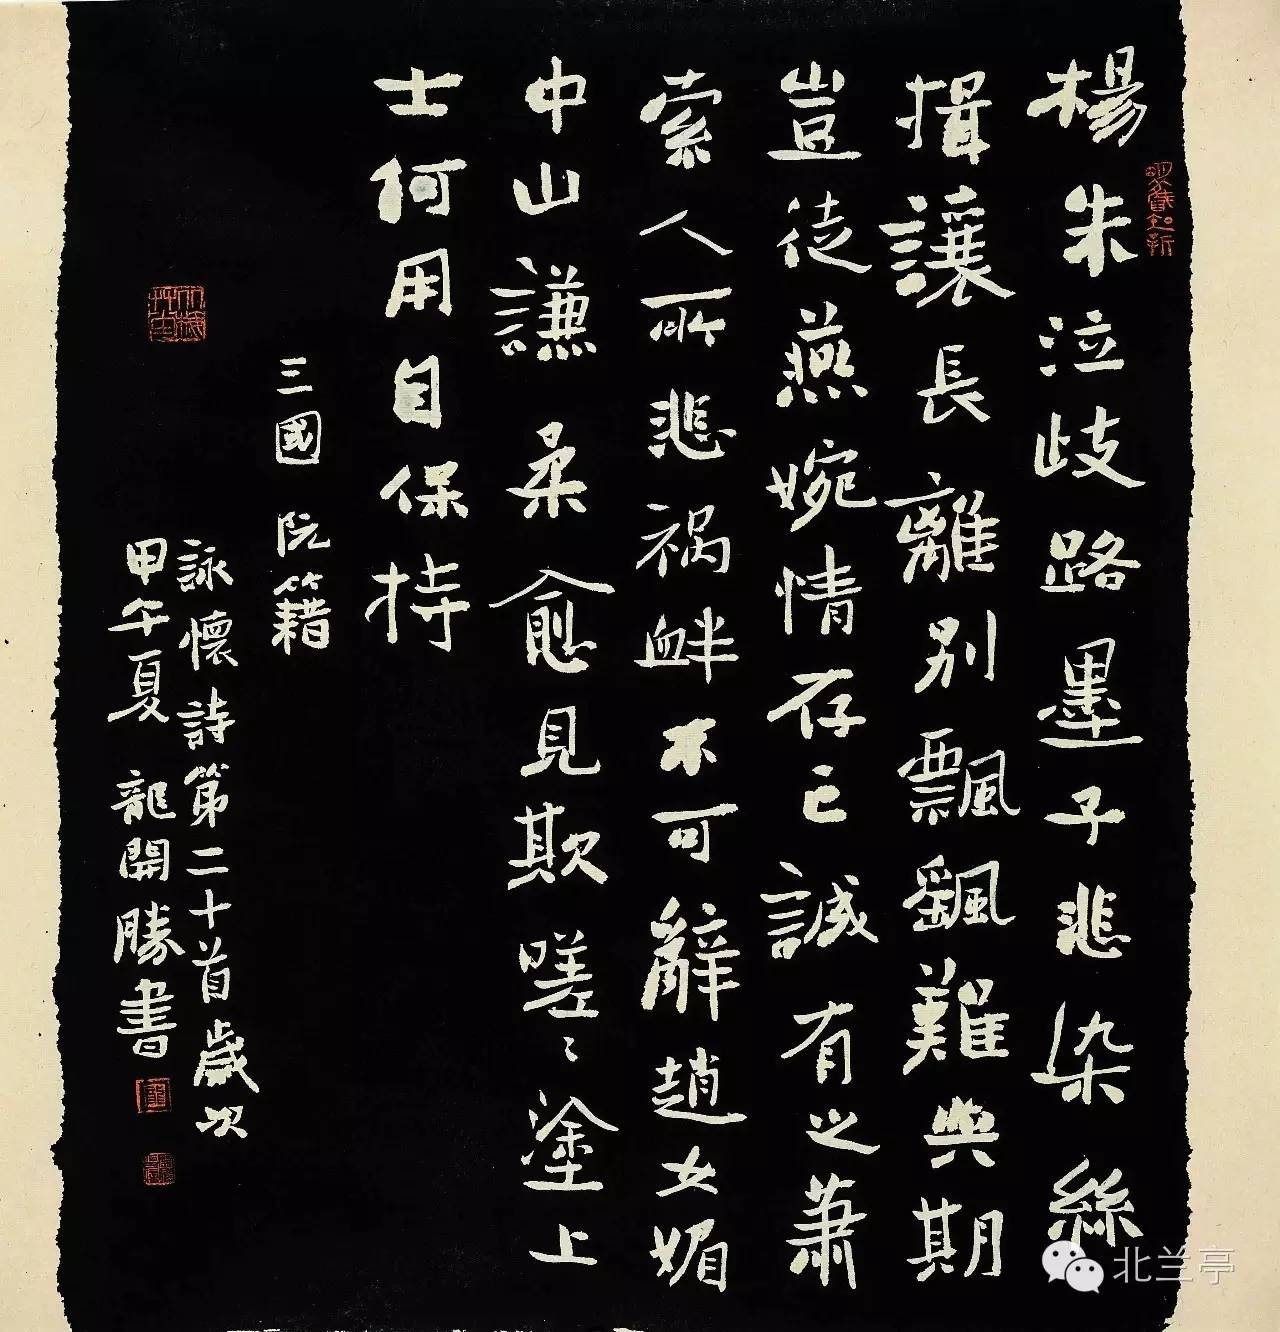 楊朱泣歧路墨子悲染絲
揖讓長離別飄颻難與期
豈徒燕婉情存亡誠有之蕭
索人所悲祸衅不可辭趙女媚
中山謙柔愈見欺嗟〻塗上
士何用自保持
三國 阮籍
詠懷詩第二十首歲次
甲午夏 龍開勝書
北兰亭